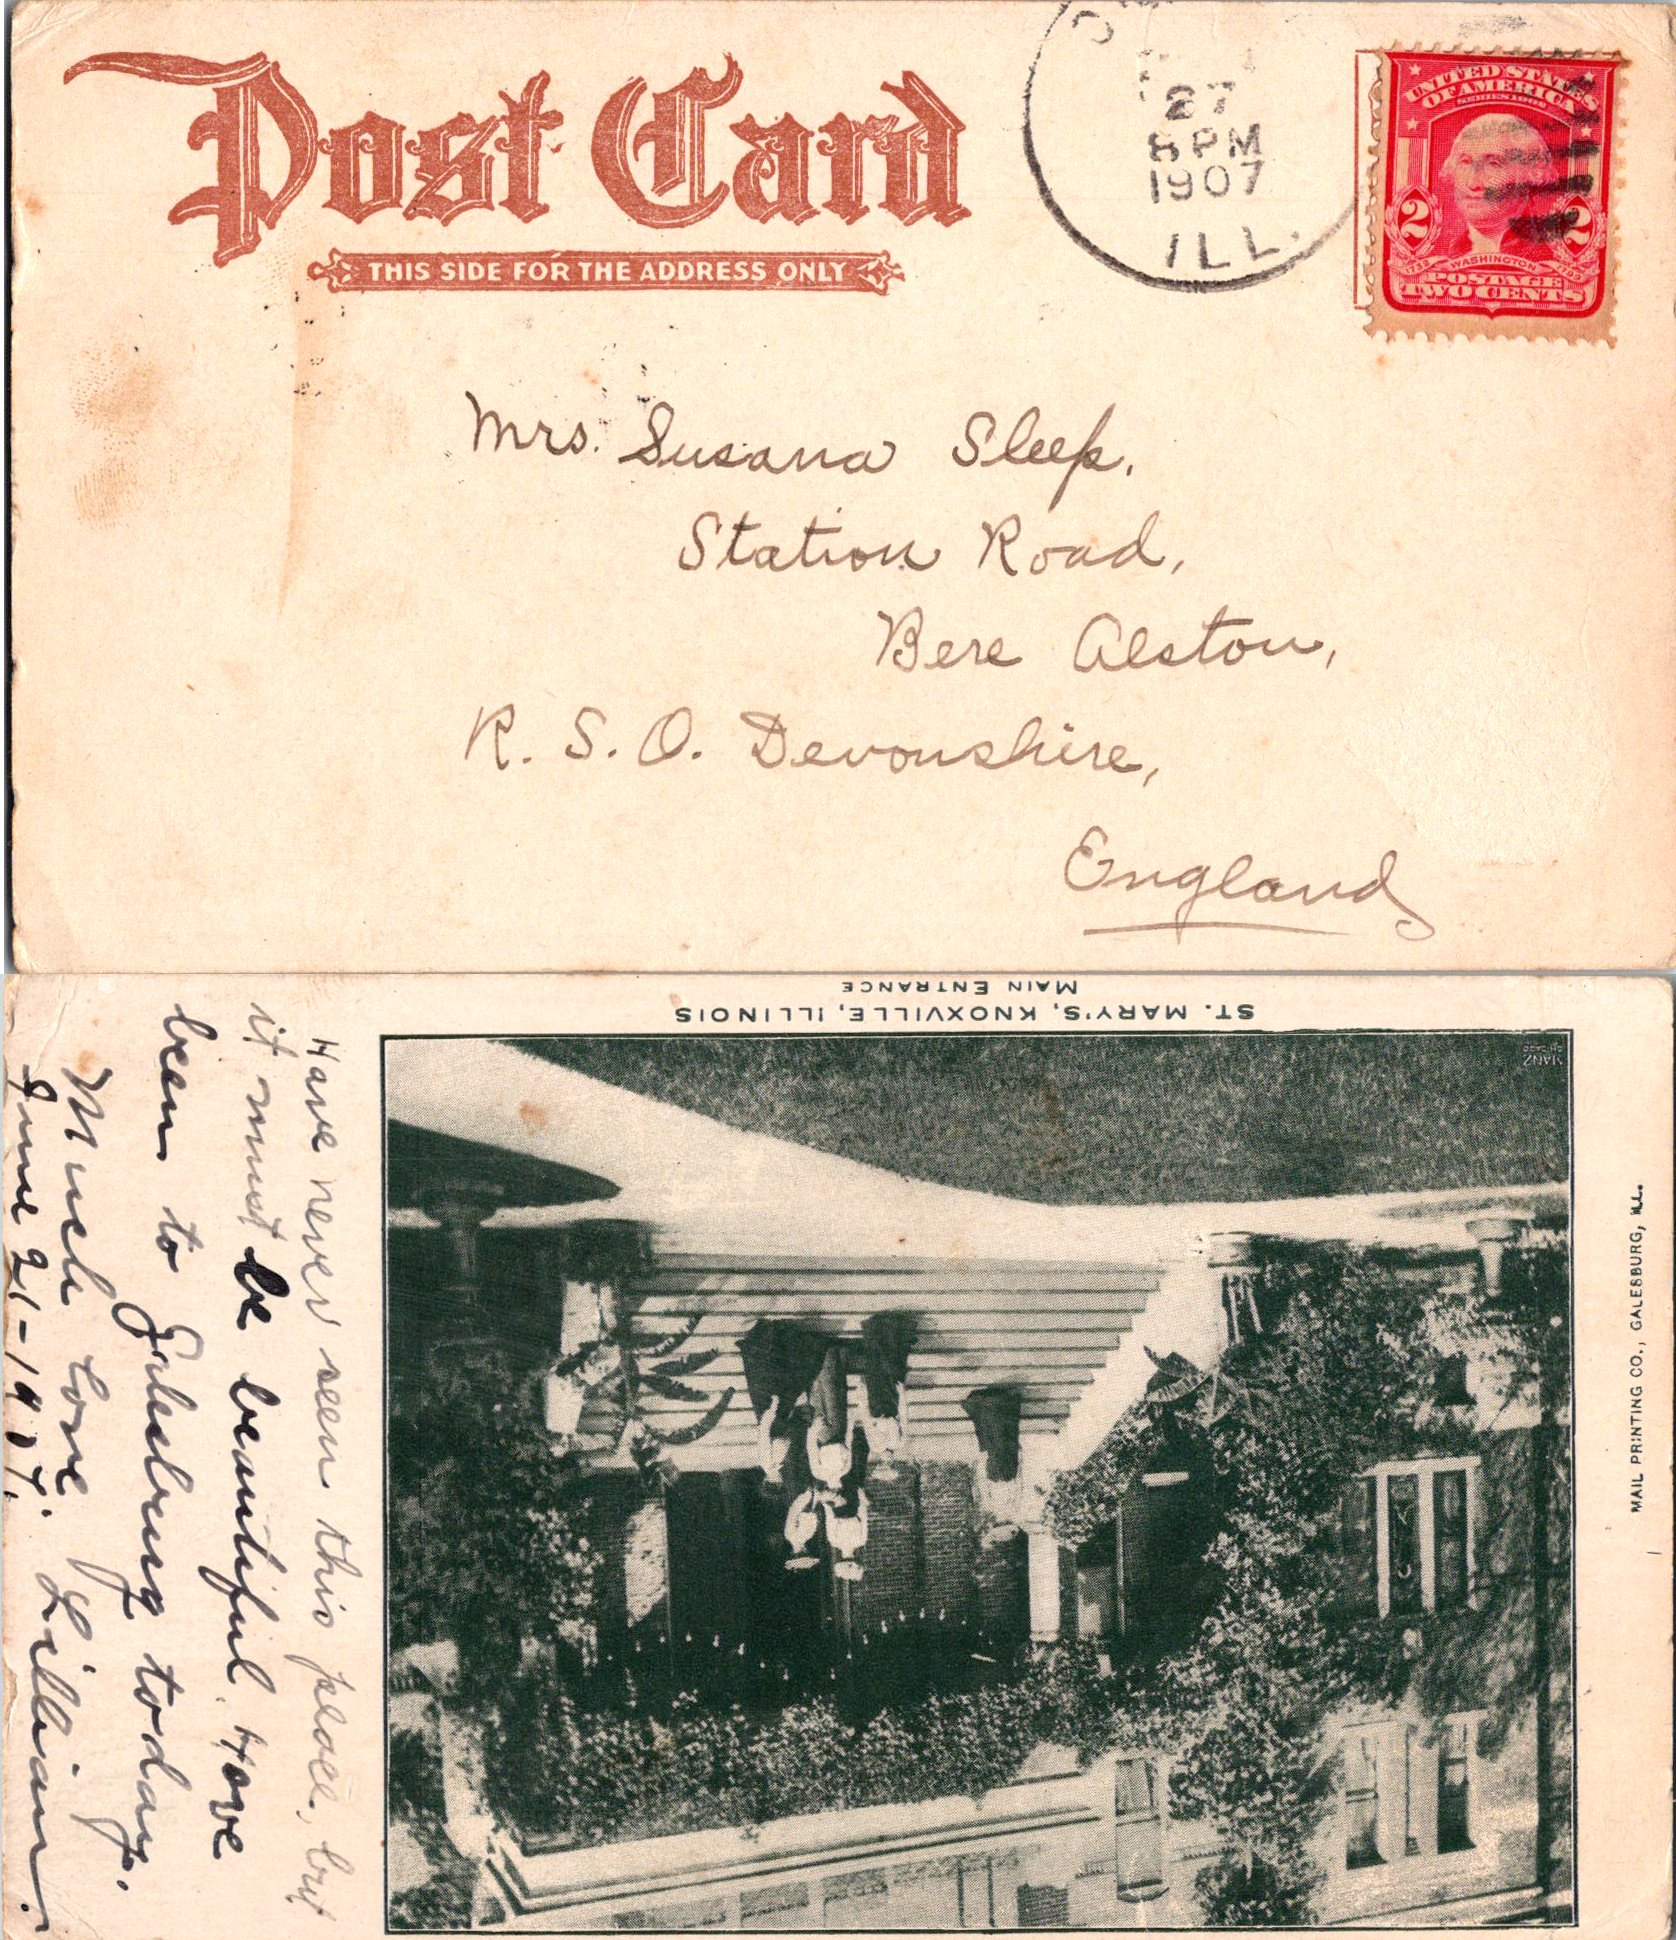 Post Card
THIS SIDE FOR THE ADDRESS ONLY
27
8 PM
1907
ILL.
UNITED STATES
OF AMERICA
SERIES 1902
2 2
1732 WASHINGTON 1799
POSTAGE
TWO CENTS
Mrs. Susana Sleep,
Station Road,
Bere Alston,
R. S. O. Devonshire,
England
ST. MARY'S, KNOXVILLE, ILLINOIS
MAIN ENTRANCE
MANZ
CHICAGO
MAIL PRINTING CO., GALESBURG, ILL.
Have never seen this place, but
it must be beautiful. Have
been to Galesburg today.
Much love Lillian.
June 21-1907.